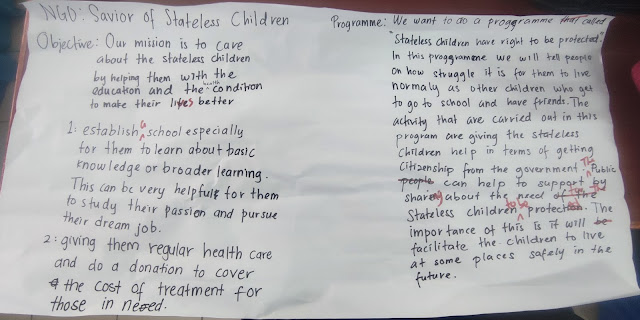 NGO: Savior of Stateless Children
Objective: Our mision is to care
about the stateless children
by helping them with the
education and the health condition
to make their lives better
1: establish a school especially
for them to learn about basic
knowledge or broader learning.
This can be very helpful for them
to study their passion and pursue
their dream job.
2: giving them regular health care
and do a donation to cover
the cost of treatment for
those in need.
Programme: We want to do a proggramme that called
"Stateless children have right to be protected"
In this proggramme we will tell people
on how struggle it is for them to live
normaly as other children who get
to go to school and have friends. The
activity that are carried out in this
program are giving the stateless
children help in terms of getting
citizenship from the government. The Public
people can help to support by
sharing about the need of the
Stateless children to be protected. The
importance of this is it will be
facilitate the children to live
at some places safely in the
future.